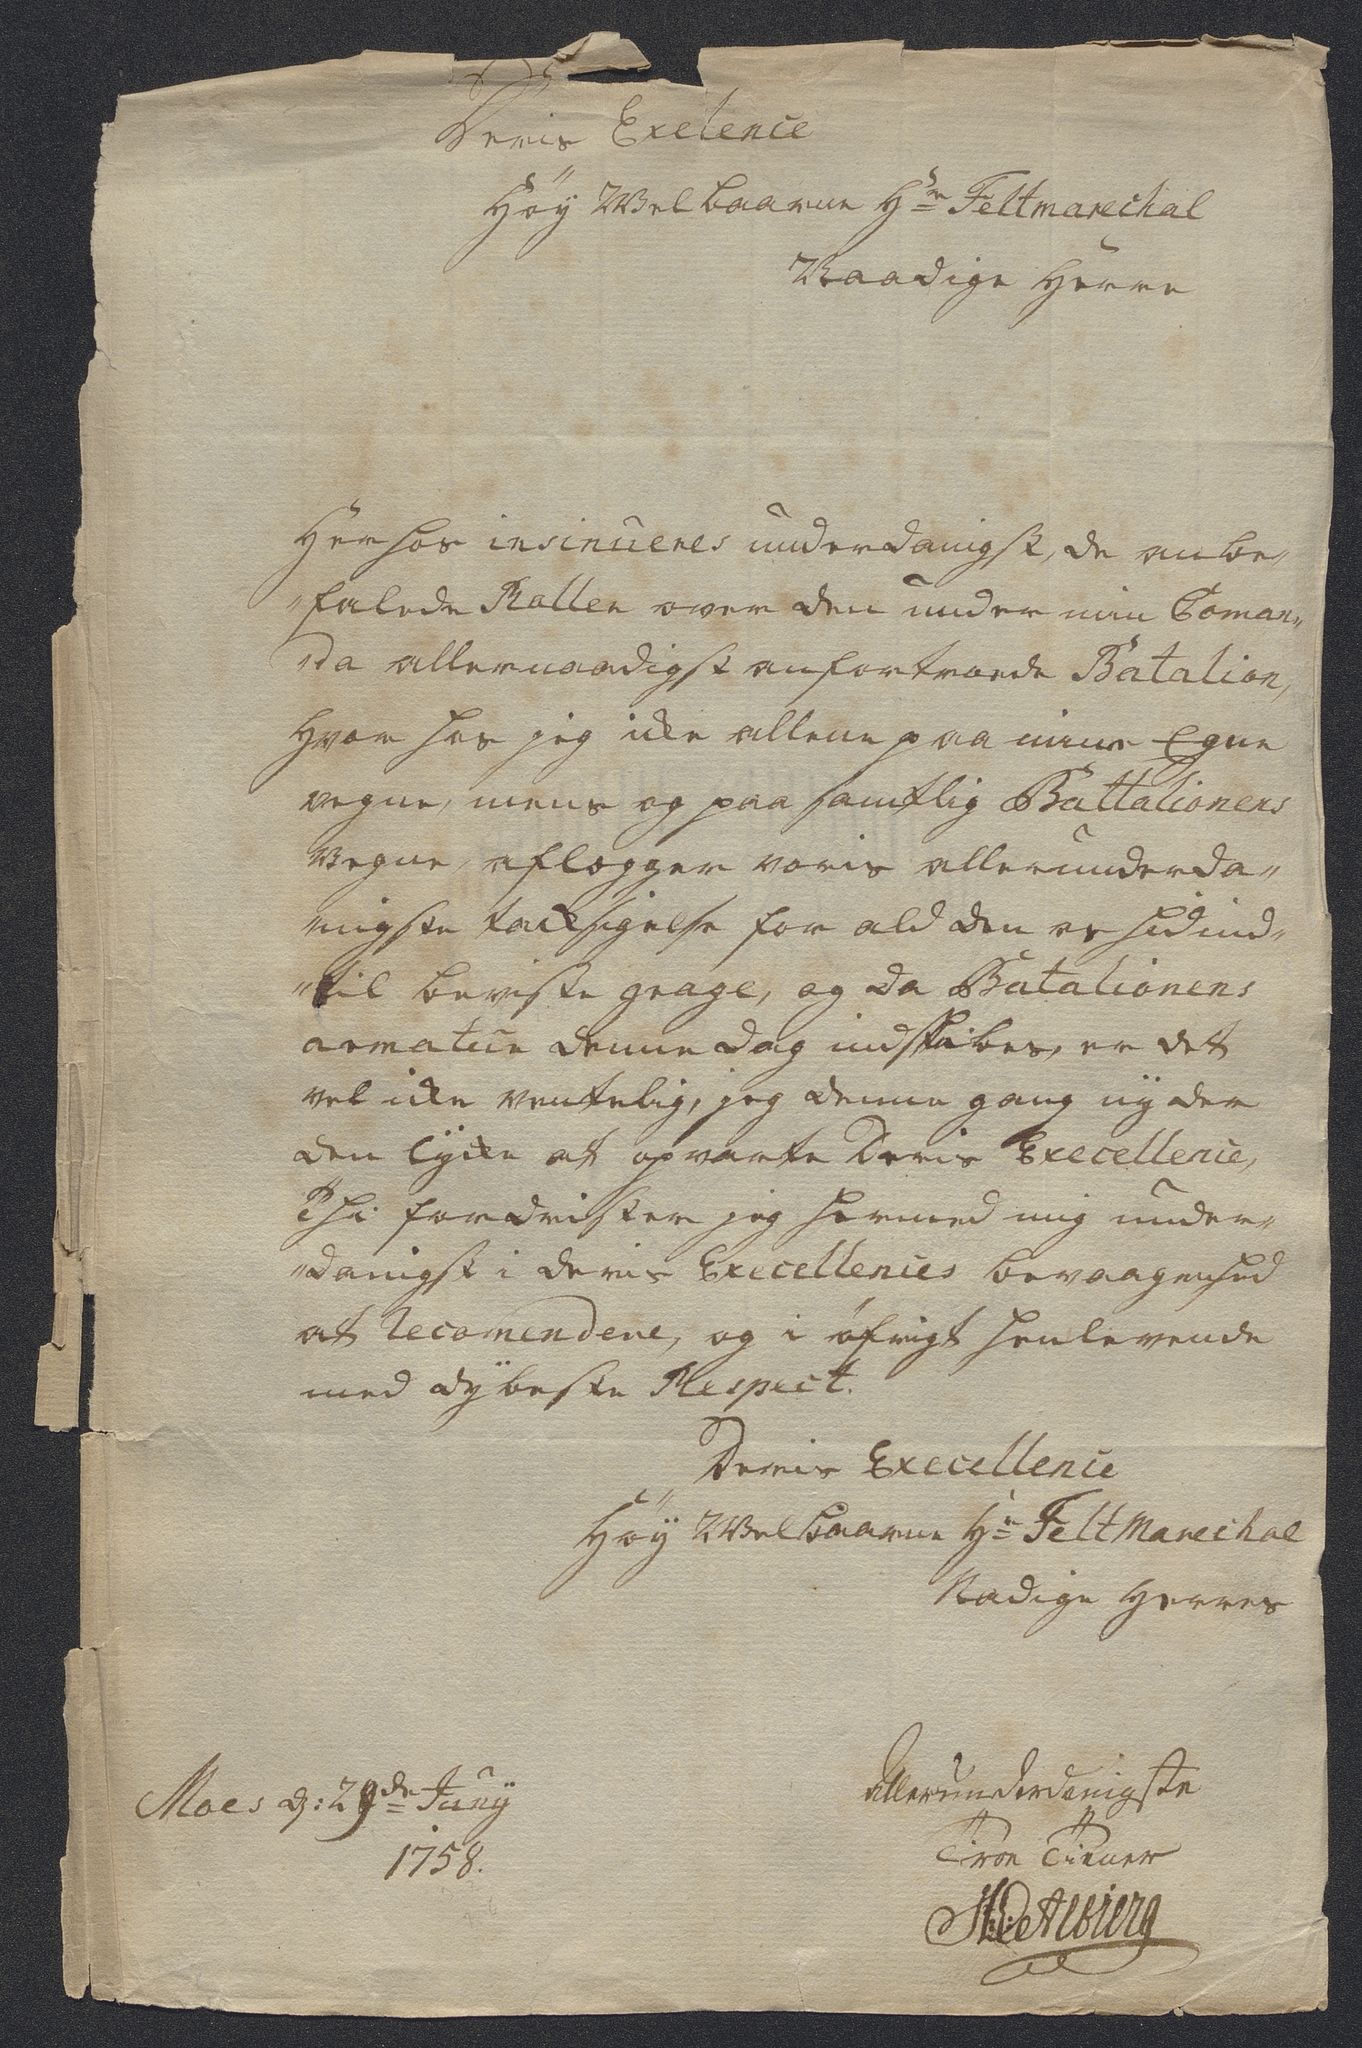 Deris Exelence
Höÿ Welbaarne Hr Feltmarechal
Naadige Herre
Herhos insinueres underdanigst, de anbe„
„falede Roller over den under min Coman„
„do allernaadigst anfortroede Batalion,
hvor hos jeg icke allene paa mine Egne
vegne, mens og paa samtlig Battalionens
Vegne, aflegger voris allerunderda„
„nigste tacksigelse for ald den os hidind„
„til beviste gnage, og da Batalionens
armatur denne dag indskibes, er det
vel icke ventelig, jeg denne gang nÿder
den Lÿcke at opvarte Deris Execellence,
Thi fordrister jeg hermed mig under„
„danigst i deris Execellences bevaagenhed
at Recomendere, og i öfrigt henlevende
med dÿbeste Respect.
Deris Execellence
Höÿ Welbaarne Hr Feltmarechal
Nadige Herres
Moes d: 29de Junÿ
1758.
allerunderdanigste
Troe Tiener